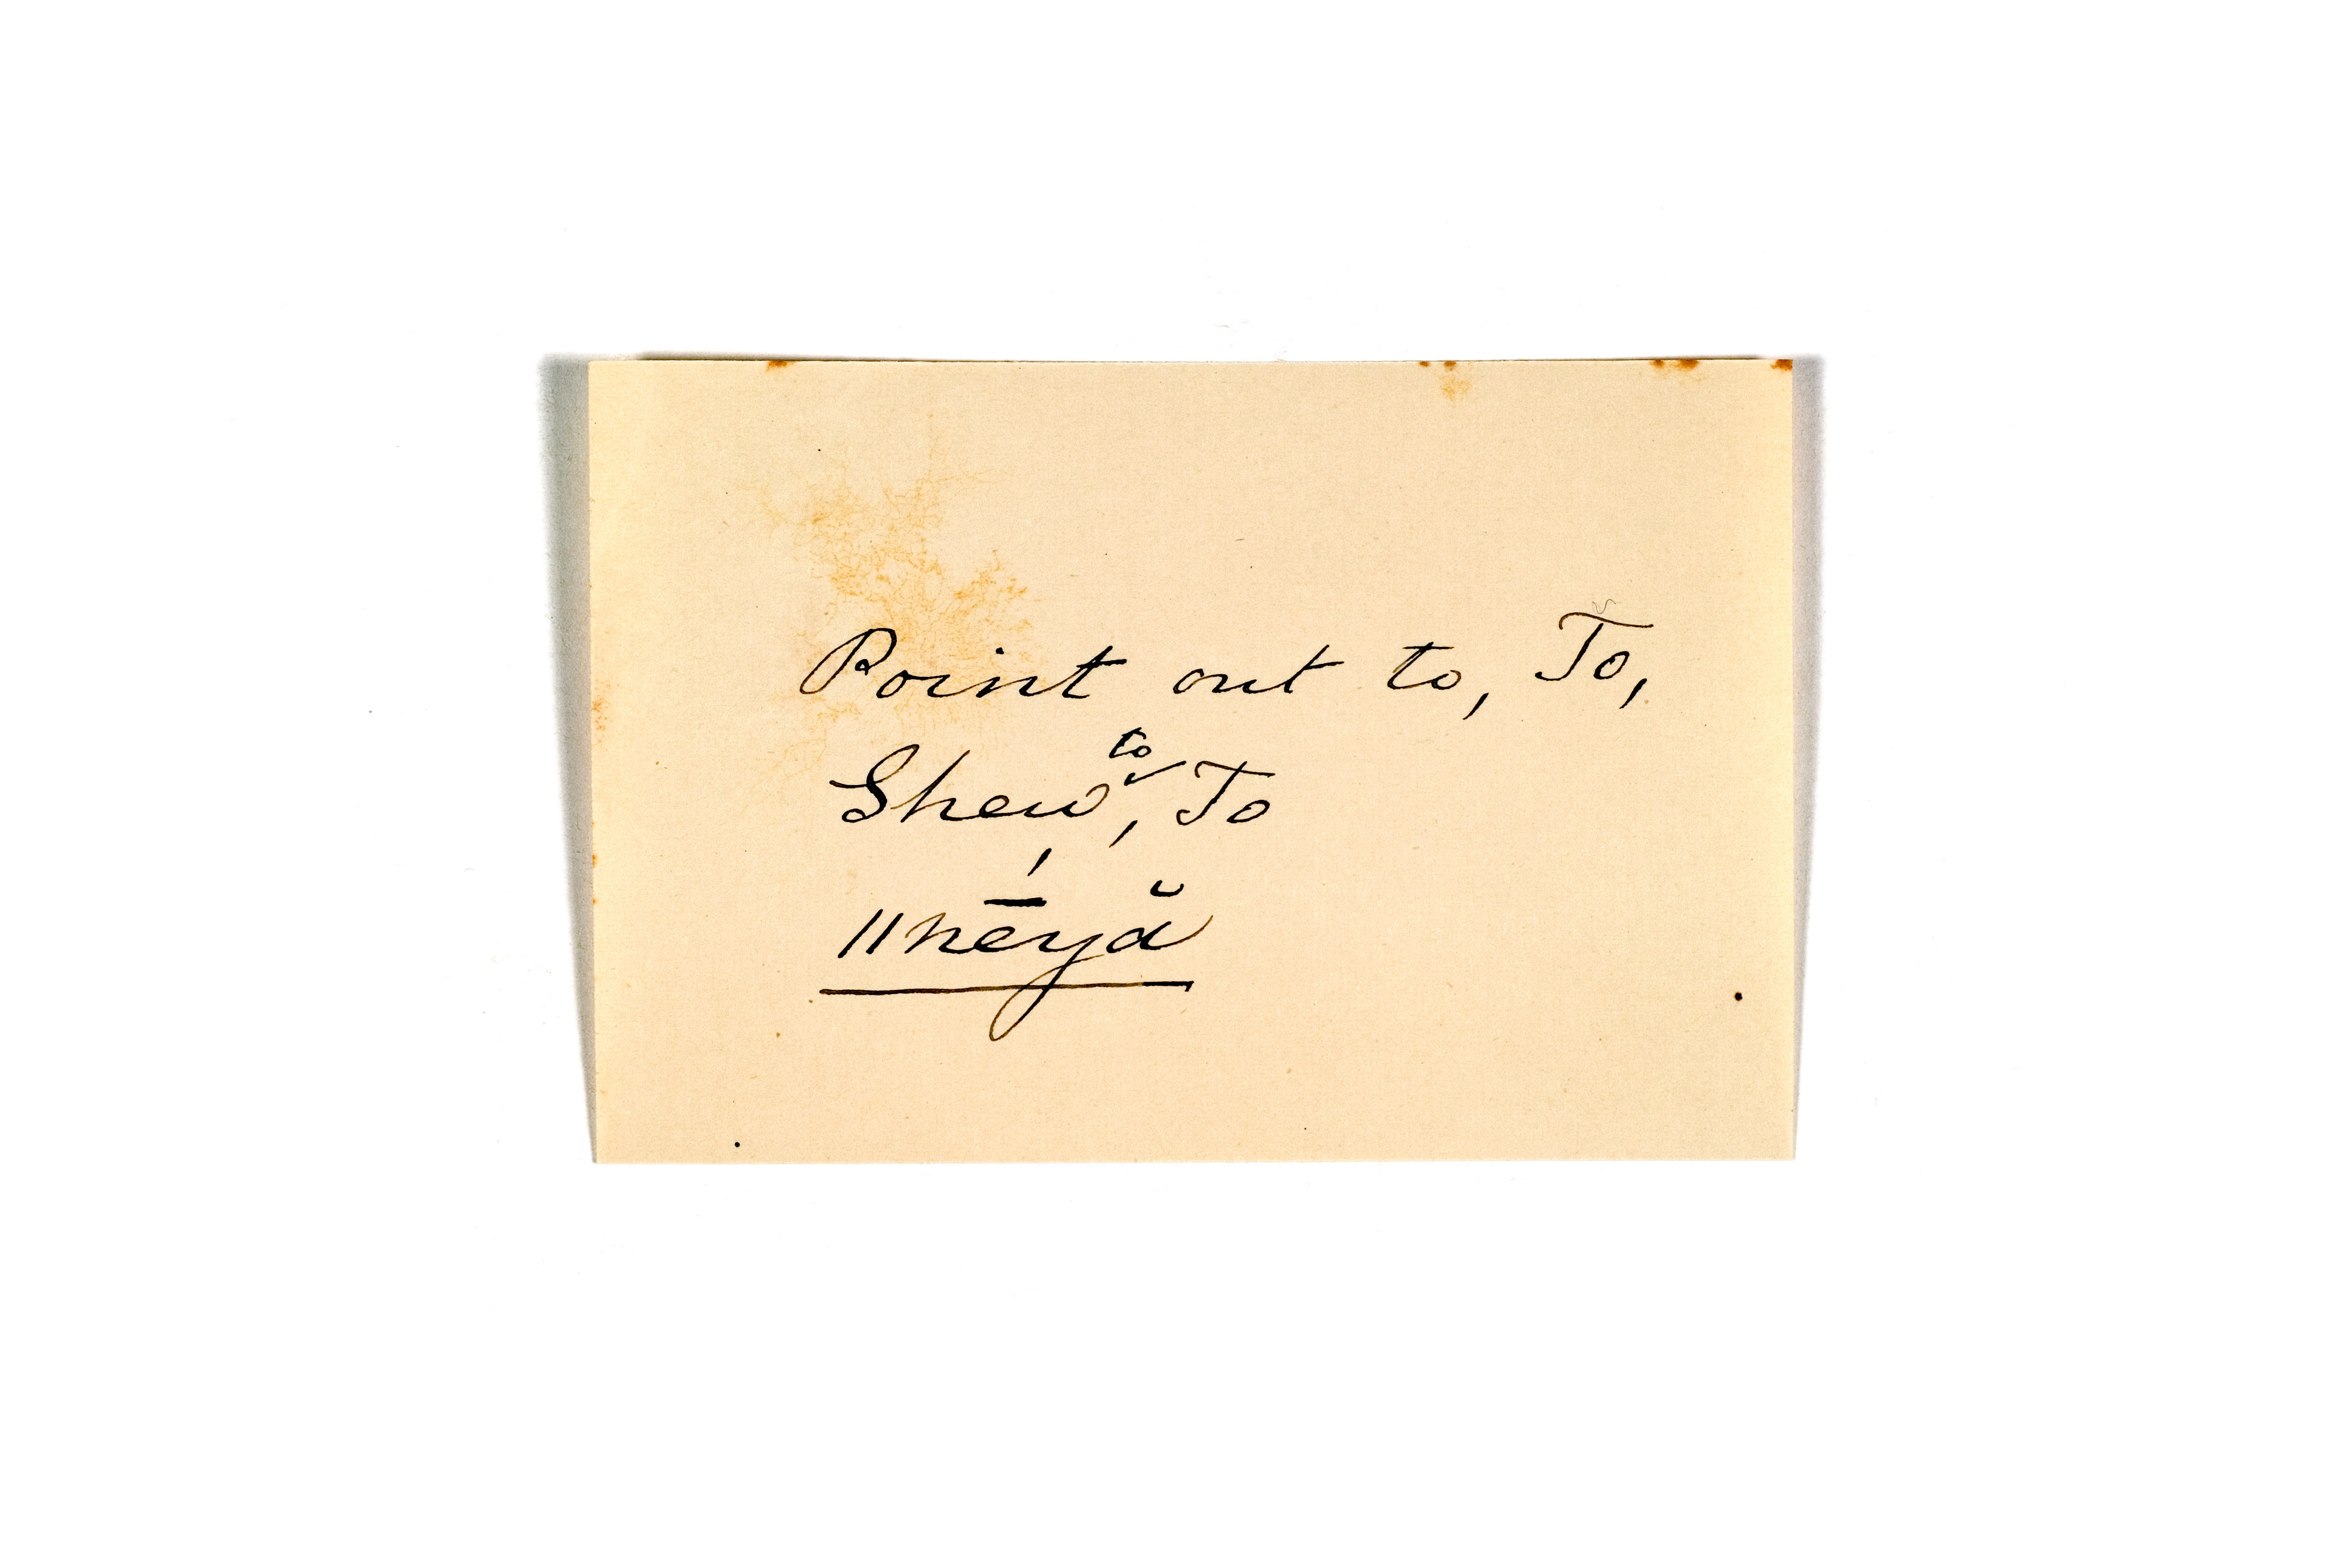 Point out to, To,
Shew to, To
ǁnḗyă